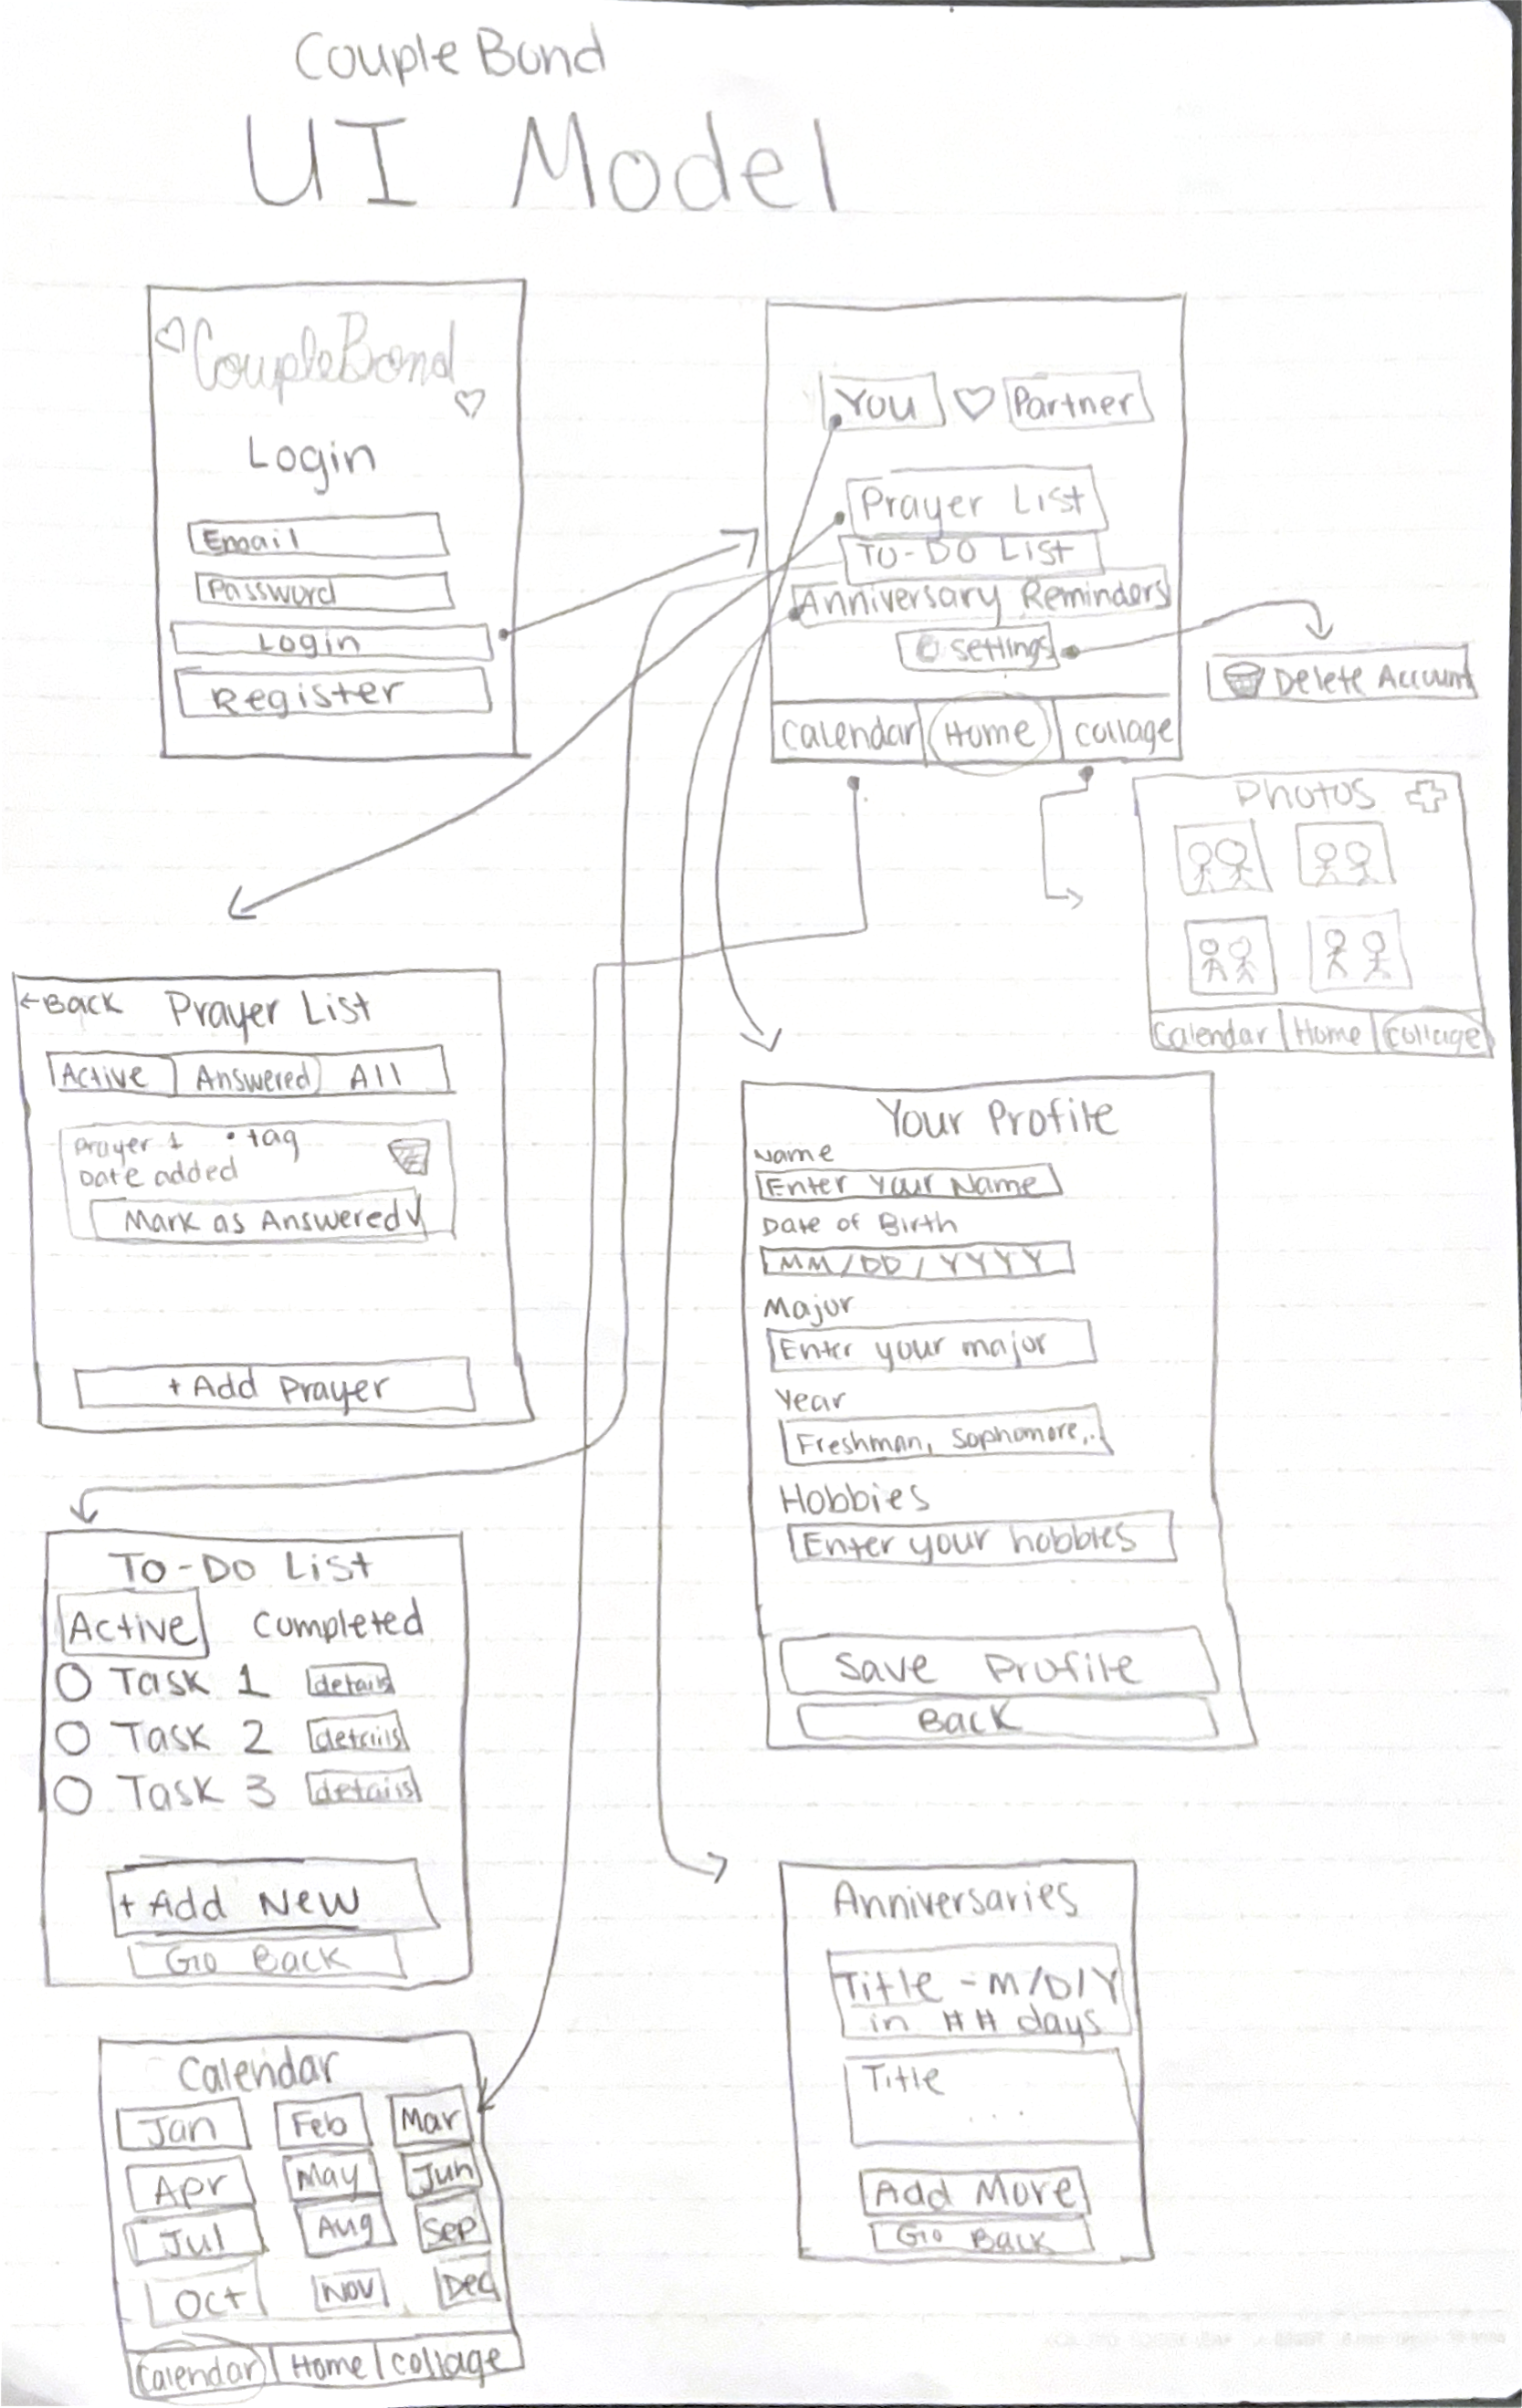 Couple Bond
UI Model
CoupleBond
Login
Email
Password
Login
Register
You
Partner
Prayer List
To-Do List
Anniversary Reminders
settings
Calendar
Home
Collage
Delete Account
Photos
Calendar
Home
Collage
←Back
Prayer List
Active
Answered
All
Prayer 1
• tag
Date added
Mark as Answered ✓
+ Add Prayer
Your Profile
Name
Enter Your Name
Date of Birth
MM/DD/YYYY
Major
Enter your major
Year
Freshman, Sophomore,..
Hobbies
Enter your hobbies
Save Profile
Back
To-Do List
Active
Completed
Task 1
details
Task 2
details
Task 3
details
+ Add New
Go Back
Anniversaries
Title - M/D/Y
in ## days
Title
...
Add More
Go Back
Calendar
Jan
Feb
Mar
Apr
May
Jun
Jul
Aug
Sep
Oct
Nov
Dec
Calendar
Home
Collage